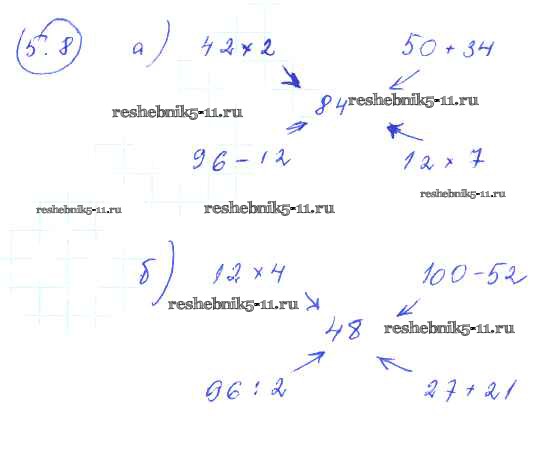 5.8 а) 42 × 2 50 + 34
84 reshebnik5-11.ru
reshebnik5-11.ru
96 - 12 12 × 7
reshebnik5-11.ru
reshebnik5-11.ru reshebnik5-11.ru
б) 12 × 4 100 - 52
reshebnik5-11.ru
48 reshebnik5-11.ru
96 : 2 27 + 21